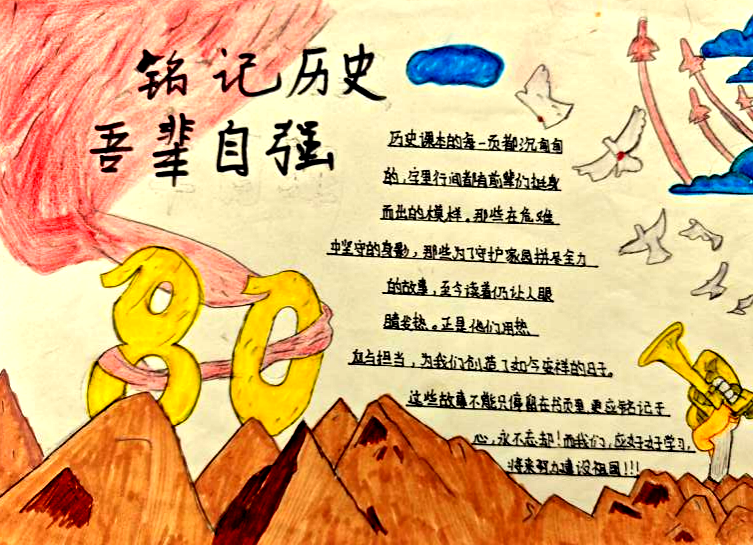 铭记历史
吾辈自强
历史课本的每一页都沉甸甸
的,字里行间都有前辈们挺身
而出的模样。那些在危难
中坚守的身影,那些为了守护家园拼尽全力
的故事,至今读着仍让人眼
睛发热。正是他们用热
血与担当,为我们创造了如今安祥的日子。
这些故事不能只停留在书页里,更应铭记于
心,永不忘却!而我们,应好好学习,
将来努力建设祖国!!!
80